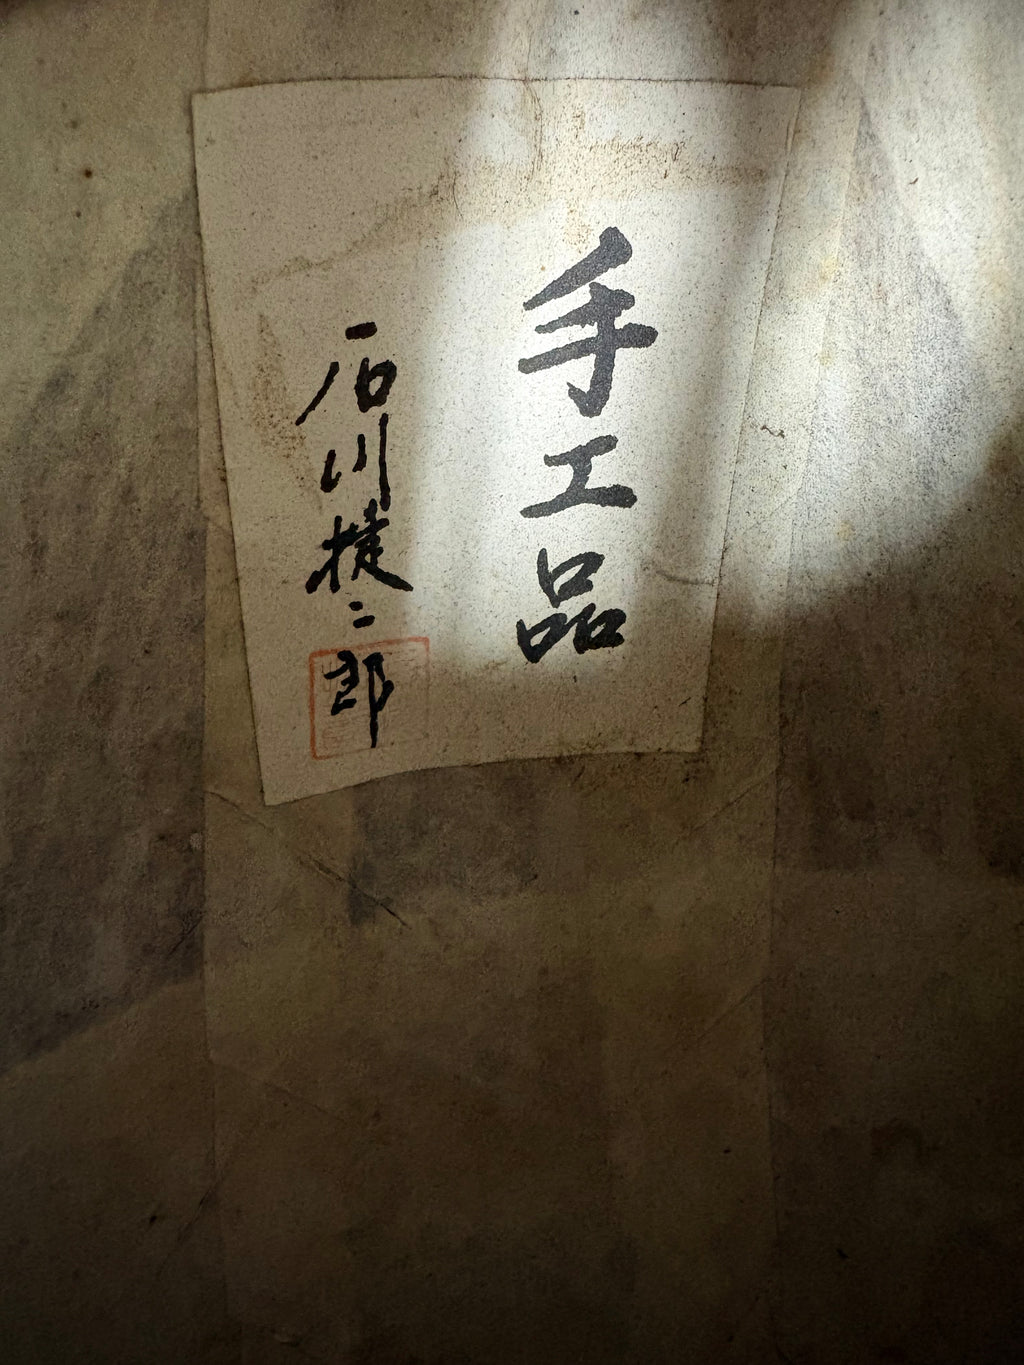 手工品
石川捷二郎